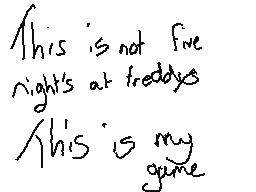 This is not five
night's at freddys
This is my
game